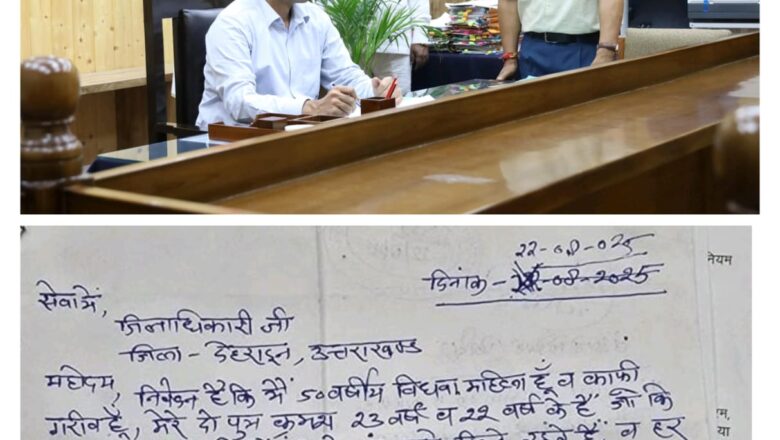 22-08-025
दिनांक - 22-08-2025
नियम
सेवा में,
जिलाधिकारी जी
जिला - देहरादून, उत्तराखण्ड
महोदय,
निवेदन है कि मैं 50 वर्षीय विधवा महिला हूँ व काफी
गरीब हूँ, मेरे दो पुत्र क्रमश 23 वर्ष व 22 वर्ष के हैं जो कि
म,
या
हैं, व हर